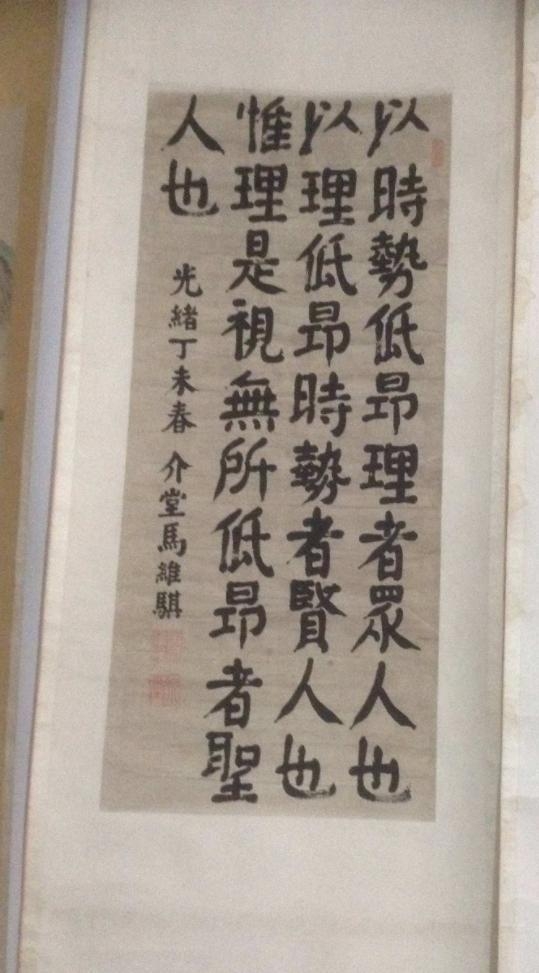 以時勢低昂理者眾人也
以理低昂時勢者賢人也
惟理是視無所低昂者聖
人也
光緒丁未春 介堂馬維騏